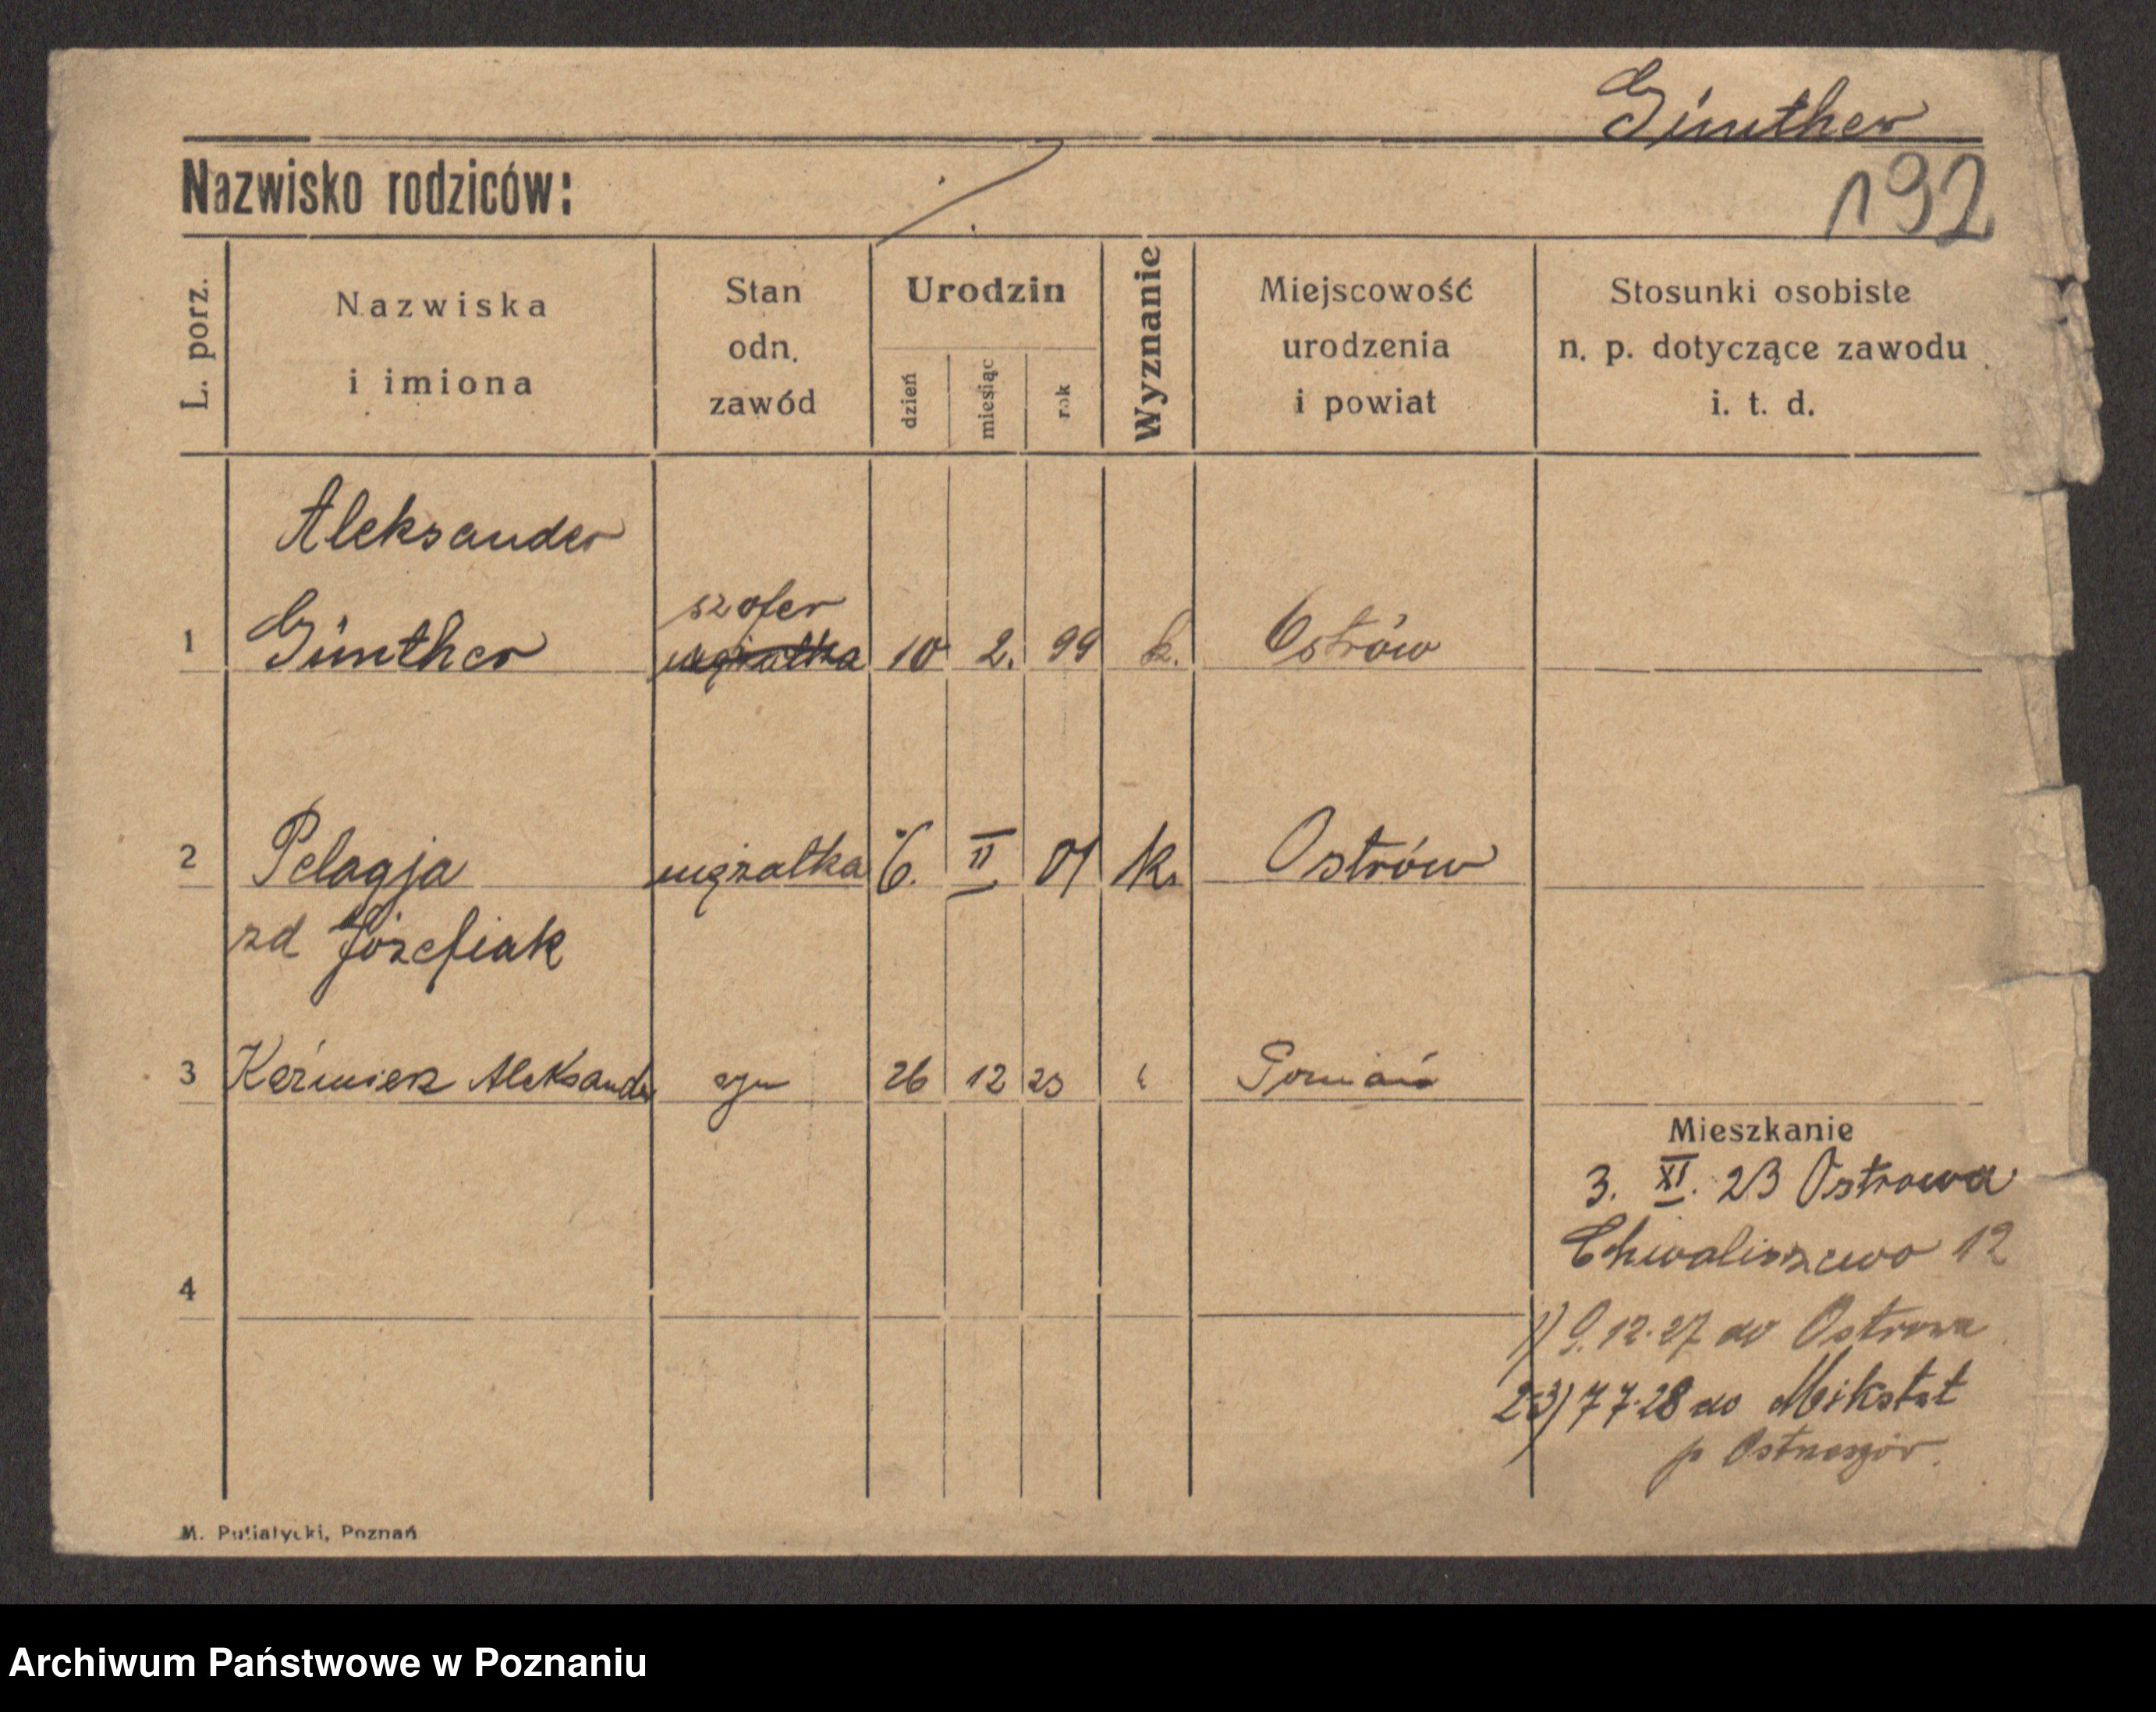 Günther
192
Nazwisko rodziców:
L. porz.
Nazwiska
i imiona
Stan
odn.
zawód
Urodzin
dzień
miesiąc
rok
Wyznanie
Miejscowość
urodzenia
i powiat
Stosunki osobiste
n. p. dotyczące zawodu
i. t. d.
Aleksander
szofer
1 Günther mężatka 10 2. 99 k. Ostrów
2 Pelagja mężatka 6. II 01 k. Ostrów
zd Józefiak
3 Kaźmierz Aleksander syn 26 12 23 Poznań
4
Mieszkanie
3. XI. 23 Ostrowa
Chwaliszewo 12
1) 9.12.27 do Ostrowa
2-3) 7 7.28 do Mikstat
p
M. Putiatycki, Poznań
Archiwum Państwowe w Poznaniu